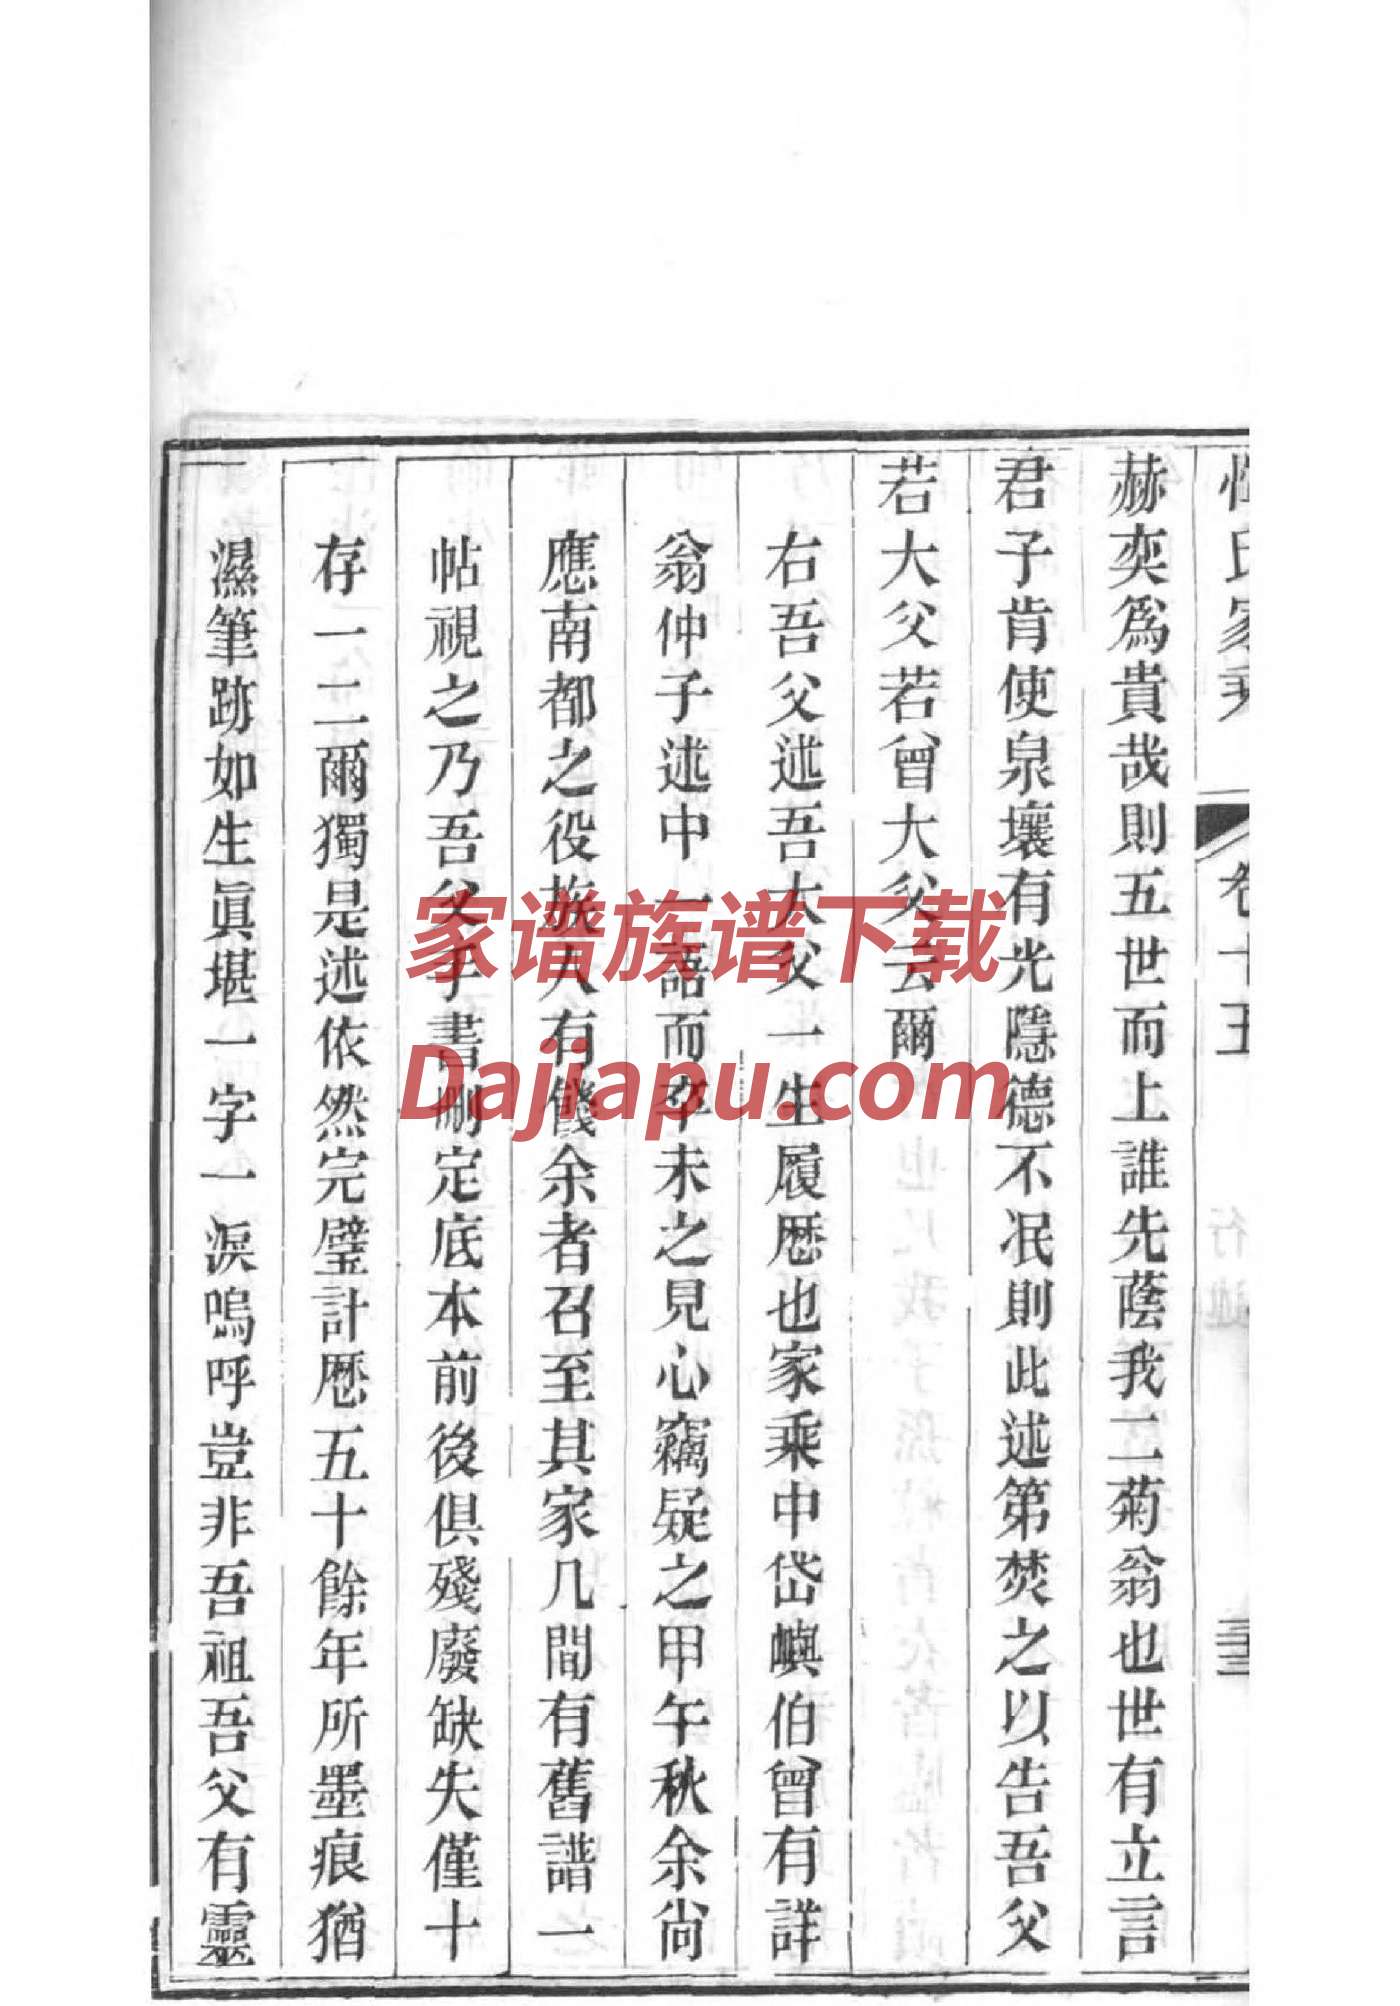 惲氏家乘 卷十五 行述
赫奕為貴哉則五世而上誰先蔭我二菊翁也世有立言
君子肯使泉壤有光隱德不泯則此述第焚之以告吾父
若大父若曾大父云爾
右吾父述吾大父一生履歷也家乘中岱嶼伯曾有詳
翁仲子述中一語而卒未之見心竊疑之甲午秋余尚
應南都之役族人有餞余者召至其家几間有舊譜一
帖視之乃吾父手書刪定底本前後俱殘廢缺失僅十
存一二爾獨是述依然完璧計歷五十餘年所墨痕猶
濕筆跡如生眞堪一字一淚嗚呼豈非吾祖吾父有靈
家谱族谱下载
Dajiapu.com